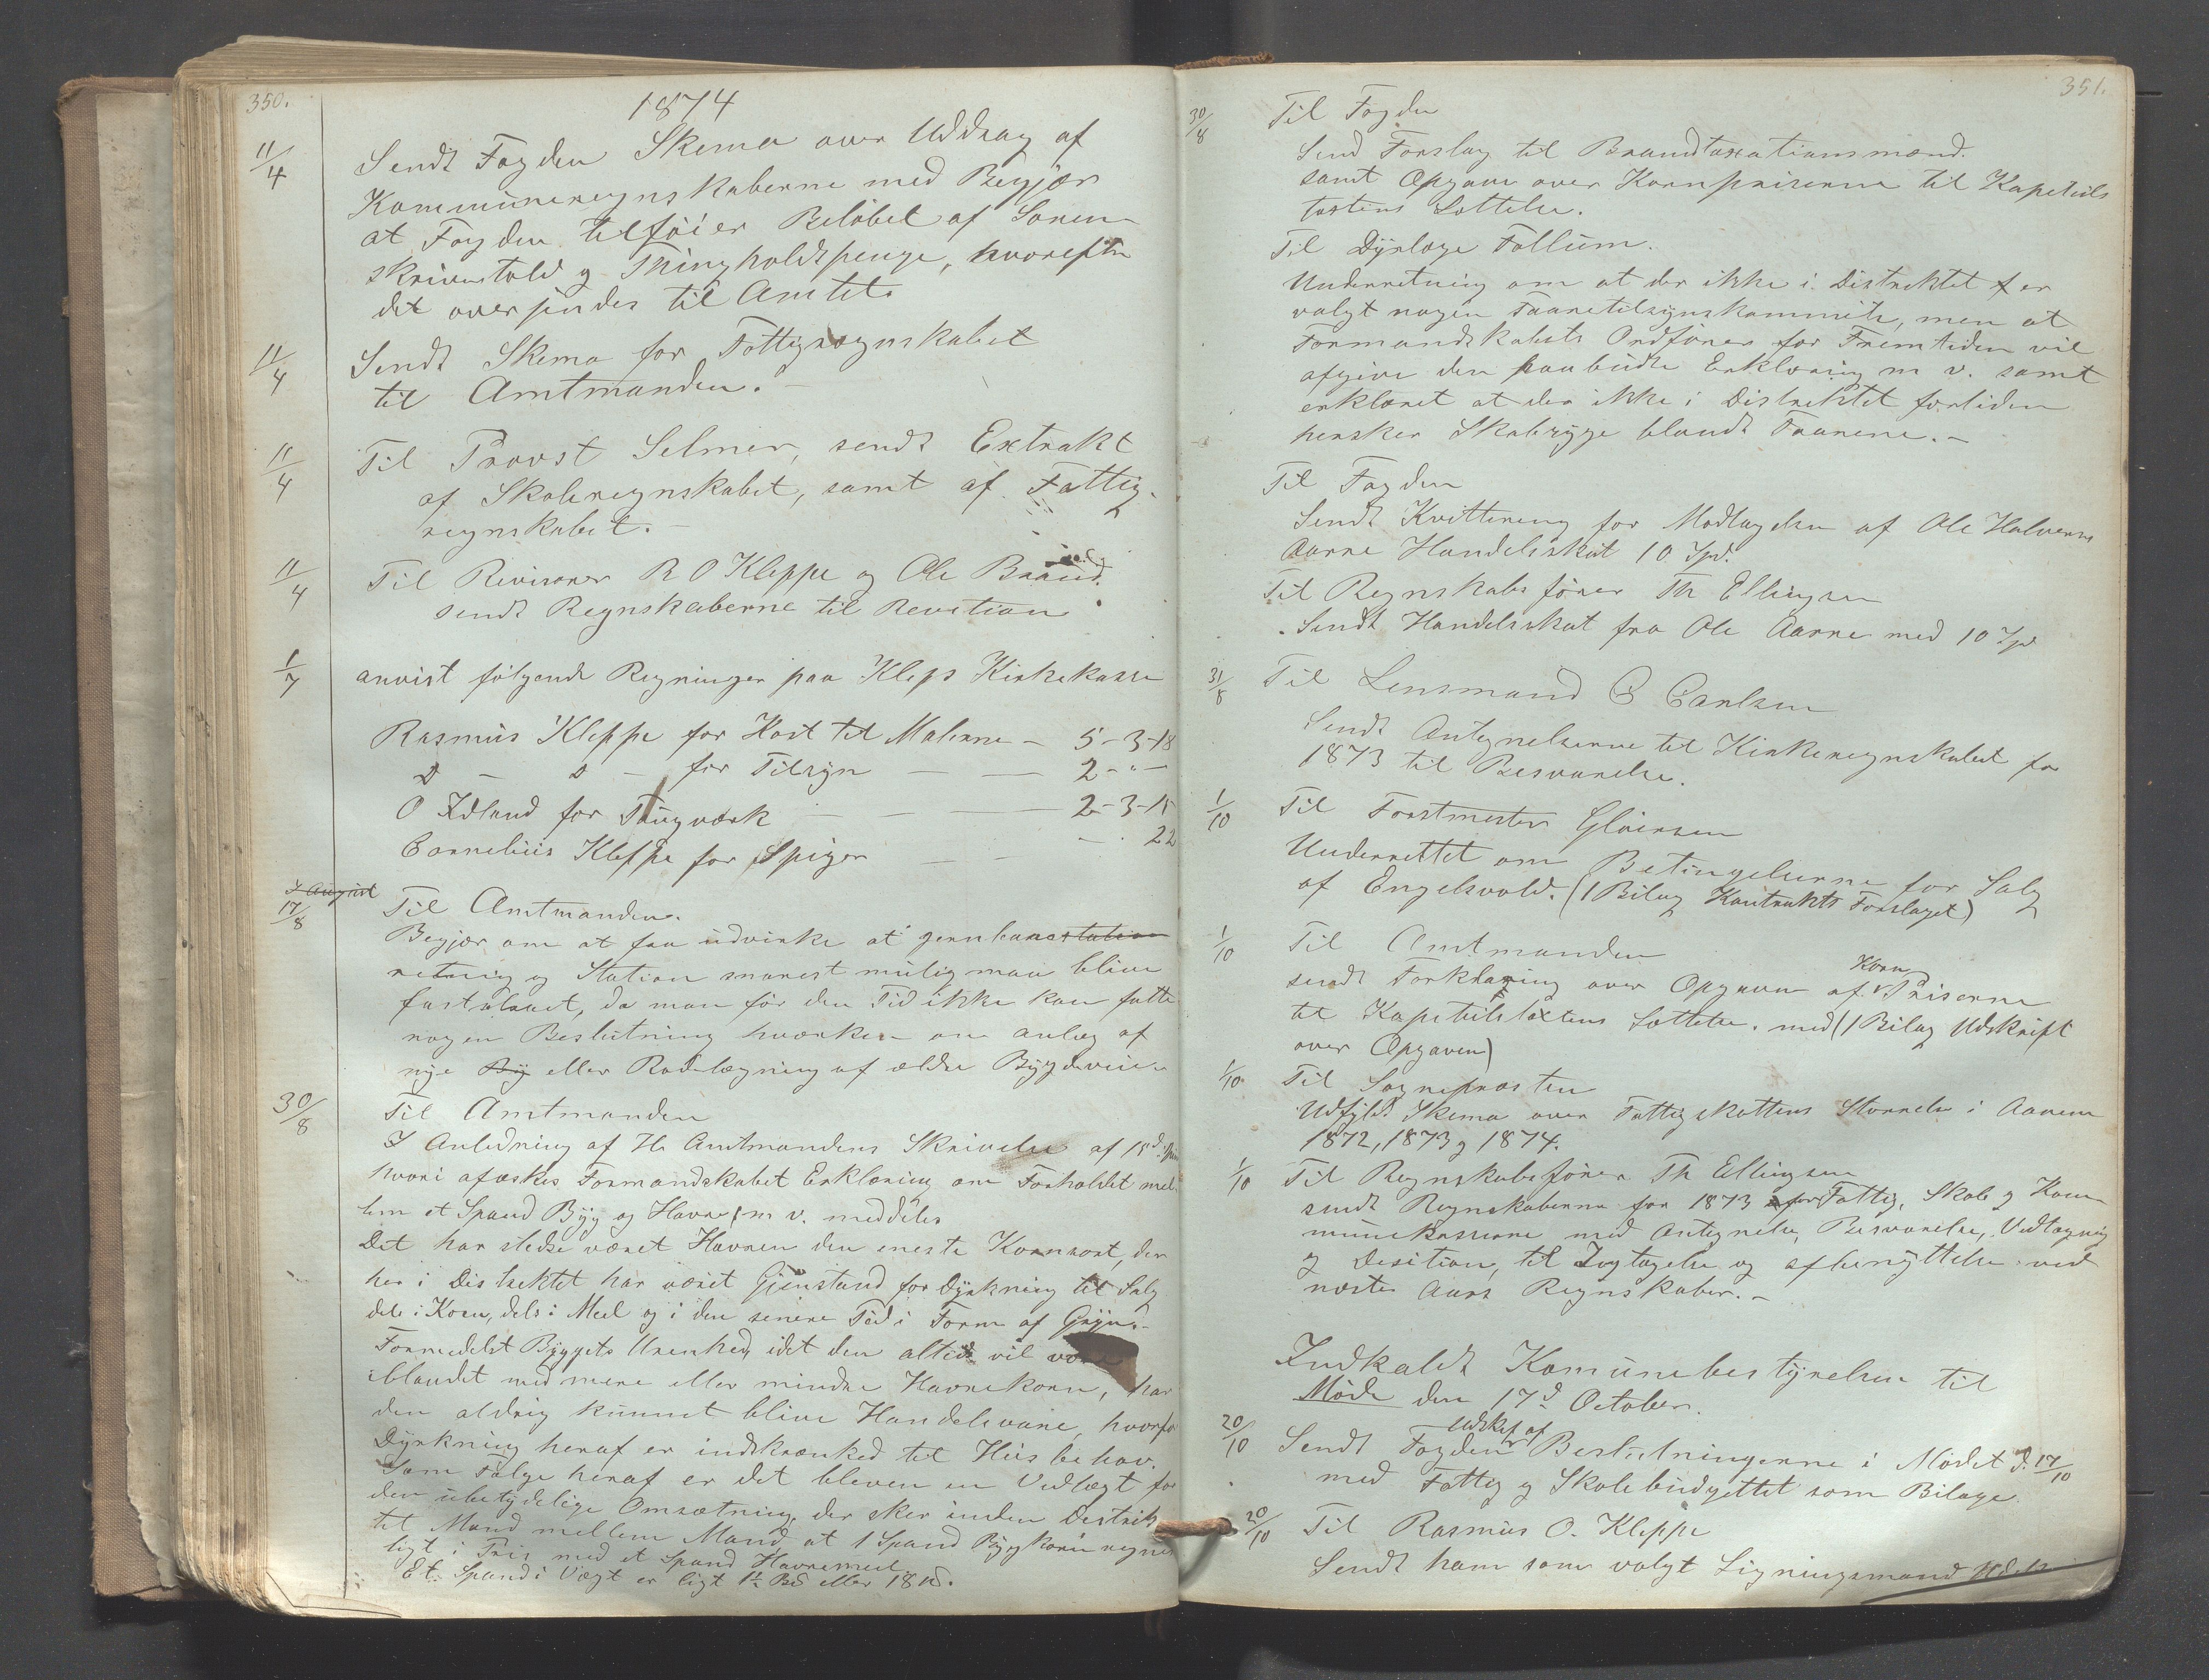 350.
1874
11/4 Sendt Fogden Skema over Uddrag af
Kommuneregnskaberne med Begjær
at Fogden tilføier Beløbet af Soren
skrivertold og Thingholdspenge, hvorefter
det oversendes til Amtet.
11/4 Sendt Skema for Fattigregnskabet
til Amtmanden. –
11/4 Til Provst Selmer, sendt Extrakt
af Skoleregnskabet, samt af Fattig-
regnskabet. –
11/4 Til Revisorer R O Kleppe og Ole Braud
sendt Regnskaberne til Revition
1/7 anvist følgende Regninger paa Kleps Kirkekasse
Rasmus Kleppe for Kost til Malerne – 5-3-18
D – D – for Tilsyn – – 2-"-
O Idland for Taugværk – – – 2-3-15
Cornelius Kleppe for Spiger – – – " 22
I August
17/8 Til Amtmanden.
Begjær om at faa udvirke at jernbanestation
retning og Station snarest mulig maa blive
fastsladet, da man før den Tid ikke kan fatte
nogen Beslutning hværken om anlæg af
nye By eller Rodelægning af ældre Bygdeveie
30/8 Til Amtmanden
I Anledning af Hr Amtmandens Skrivelse af 15d
hvori afæskes Formandskabet Erklæring om Forholdet mel
lem et Spand Byg og Havre m v. meddeles
Det har stedse været Havren den eneste Kornsort, der
her i Distriktet har været Gjenstand for Dyrkning til Salg
dels i Korn, dels i Meel og i den senere Tid i Form af Gryn. –
Formedelst Byggets Urenhed, idet den altid vil være
iblandet med mere eller mindre Havrekorn, har
den aldrig kunnet blive Handelsvare, hvorfor
Dyrkning heraf er indskrænked til Husbehov.
Som Følge heraf er det bleven en Vedtægt for
den ubetydelige Omsætning, der sker inden Destrik
tet Mand mellem Mand, at 1 Spand Bygkorn regnes
ligt i Pris med et Spand Havremeel.
Et Spand i Vægt er ligt 1½ Bd eller 18 ℔.
351.
30/8 Til Fogden
Send Forslag til Brandtaxationsmænd.
samt Opgave over Kornpriserne til Kapetuls
taxtens Sættelse.
Til Dyrlæge Follum.
Underretning om at der ikke i Distriktet f er
valgt nogen Faaretilsynskommite, men at
Formandskabets Ordfører for Fremtiden vil
afgive den paabudte Erklæring m v. samt
erklæret at der ikke i Distriktet fortiden
hersker Skabsyge blandt Faarene. –
Til Fogden
Sendt Kvittering for Modtagelsen af Ole Halvorsen
Aarre Handelsskat 10 Spd.
Til Regnskabsfører Th Ellingsen
Sendt Handelsskat fra Ole Aarre med 10 Spd
31/8 Til Lensmand C Carlsen
Sendt Antegnelserne til Kirkeregnskabet for
1873 til Besvarelse.
1/10 Til Forstmester Gløersen
Underrettet om Betingelserne for Salg
af Engelsvold. (1 Bilag Kontrakts Forslaget)
1/10 Til Amtmanden
sendt Forklaring over Opgaven af Korn Priserne
til Kapitelstaxtens Sættelse. med (1 Bilag Udskrift
over Opgaven)
1/10 Til Sognepræsten
Udfyldt Skema over Fattigskattens Størrelse i Aarene
1872, 1873 og 1874.
1/10 Til Regnskabsfører Th Ellingsen
sendt Regnskaberne for 1873 for Fattig, Skole og Kom
munekasserne med Antegnelse, Besvarelse, Vedtagning
og Desition, til Iagtagelse og afbenyttelse ved
næste Aars Regnskaber. –
Indkaldt Komunebestyrelsen til
Møde den 17d October.
20/10 Sendt Fogden Udskrf af Beslutningerne i Mødet d. 17/10
med Fattig og Skolebudgettet som Bilage
20/10 Til Rasmus O. Kleppe
Sendt ham som valgt Ligningsmand